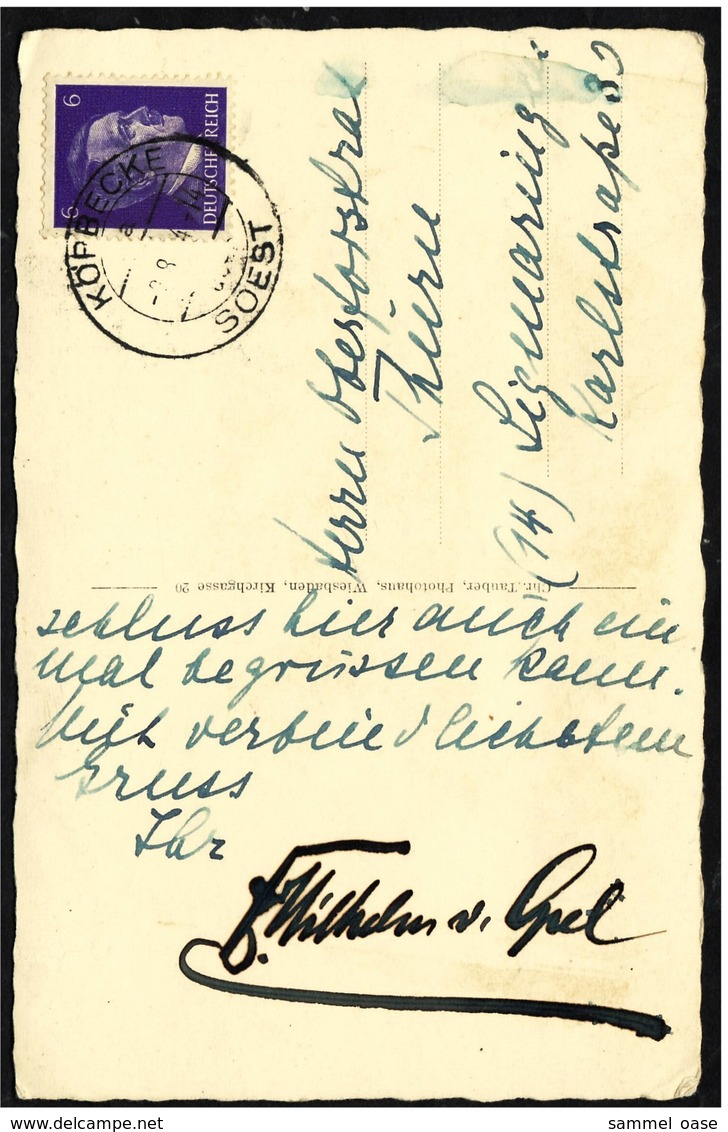 6
6
DEUTSCHES REICH
KÖRBECKE
SOEST
Herrn Oberforstrat
Thürn
(14) Sigmaringen
Karlstraße 30
Chr. Tauber, Photohaus, Wiesbaden, Kirchgasse 20
schluss hier auch ein
mal begrüssen kann.
Mit verbindlichstem
Gruss
Ihr
F. Wilhelm v. Opel
sammel oase